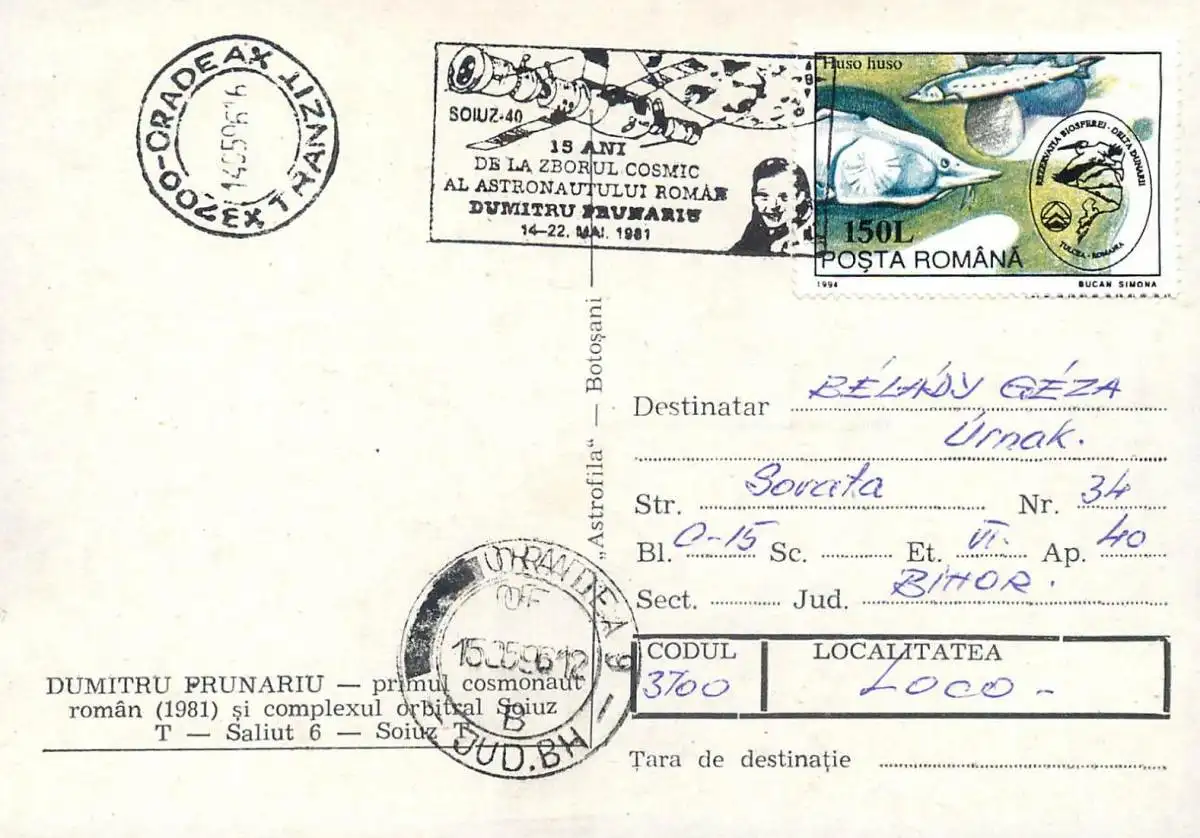 3700-ORADEA X TRANZIT X
SOIUZ-40
15 ANI
DE LA ZBORUL COSMIC
AL ASTRONAUTULUI ROMÂN
DUMITRU PRUNARIU
14-22. MAI. 1981
Huso huso
REZERVATIA BIOSFEREI - DELTA DUNARII
TULCEA - ROMANIA
150L
POȘTA ROMÂNĂ
1994
BUCAN SIMONA
„Astrofila“ — Botoșani
Destinatar BÉLÁDY GÉZA
Úrnak.
Str. Sovata Nr. 34
Bl. C-15 Sc. Et. VI. Ap. 40
Sect. Jud. BIHOR.
CODUL LOCALITATEA
3700 LOCO -
Țara de destinație
DUMITRU PRUNARIU — primul cosmonaut
român (1981) și complexul orbital Soiuz
T — Saliut 6 — Soiuz T
OF
15.05.96 12
B
JUD. BH